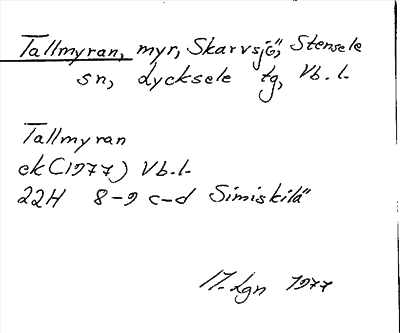 Tallmyran, myr, Skarvsjö, Stensele
sn, Lycksele tg, Vb.l.
Tallmyran
ek (1977) Vb.l.
22H 8-9 c-d Simiskilä
17. Lgn 1977